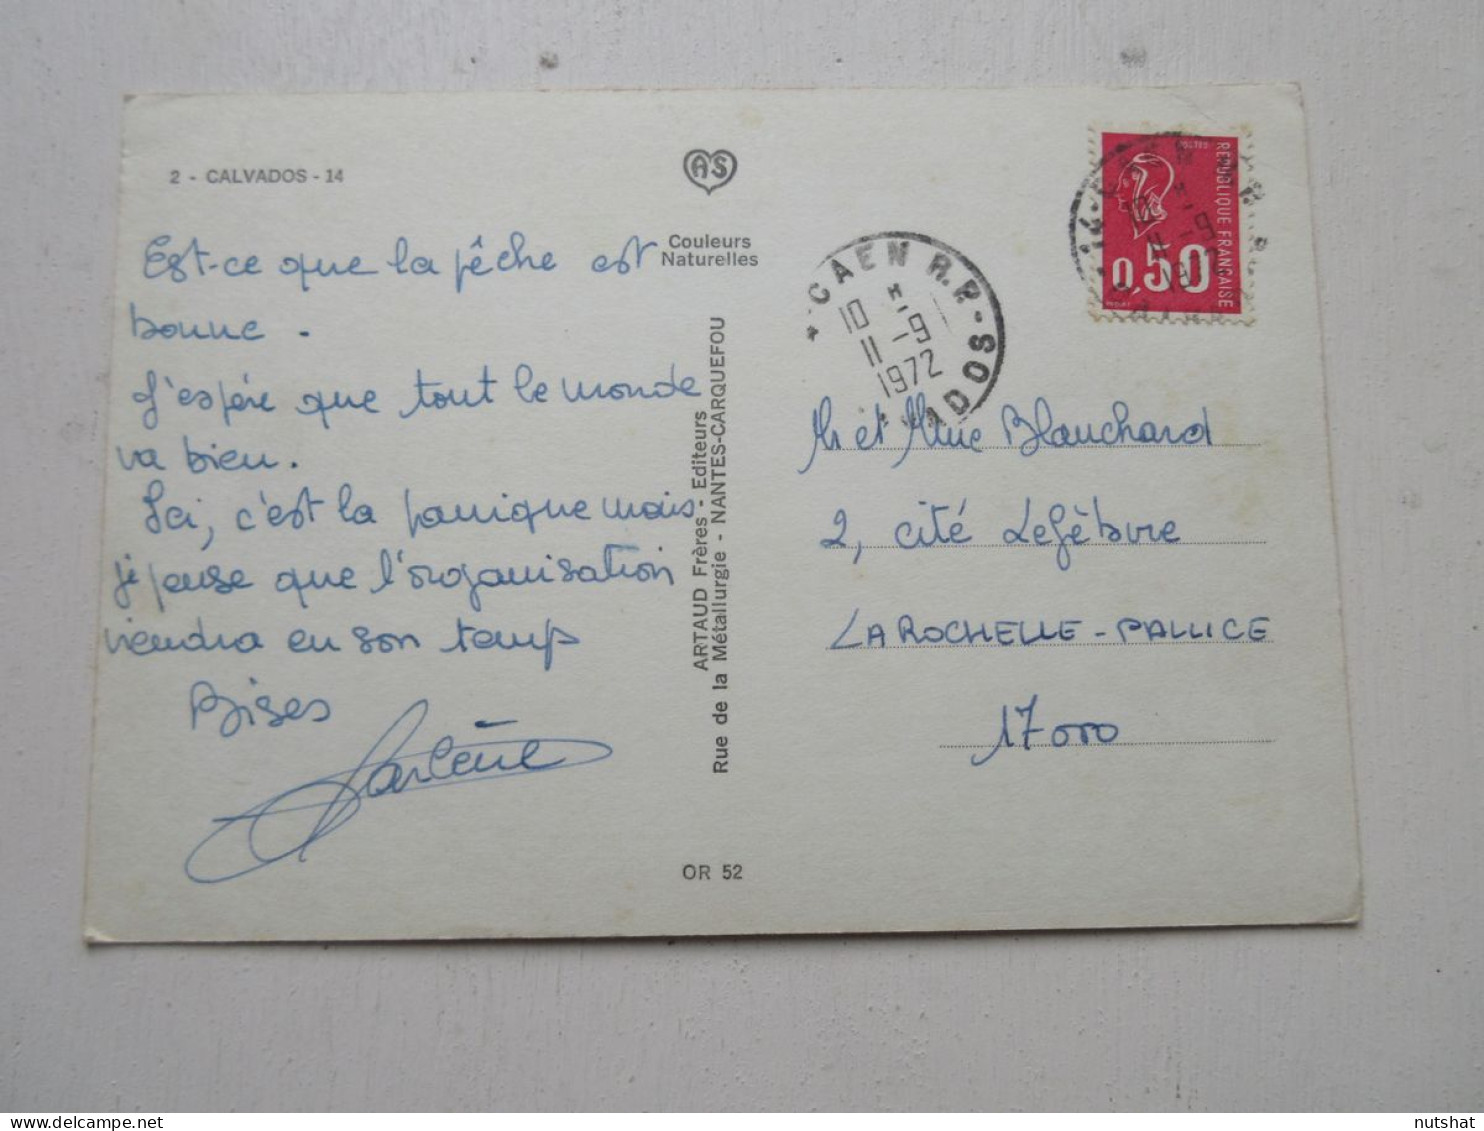 2 - CALVADOS - 14
AS
Couleurs
Naturelles
Est-ce que la pêche est
bonne.
J'espère que tout le monde
va bien.
Ici, c'est la panique mais
je pense que l'organisation
viendra en son temps
Bises
ARTAUD Frères - Editeurs
Rue de la Métallurgie - NANTES-CARQUEFOU
OR 52
CAEN R.P.
10 H
11 - 9
1972
POSTES
REPUBLIQUE FRANÇAISE
0,50
Mr et Mme Blanchard
2, cité Lefèbvre
LA ROCHELLE - PALLICE
17000
nutshat